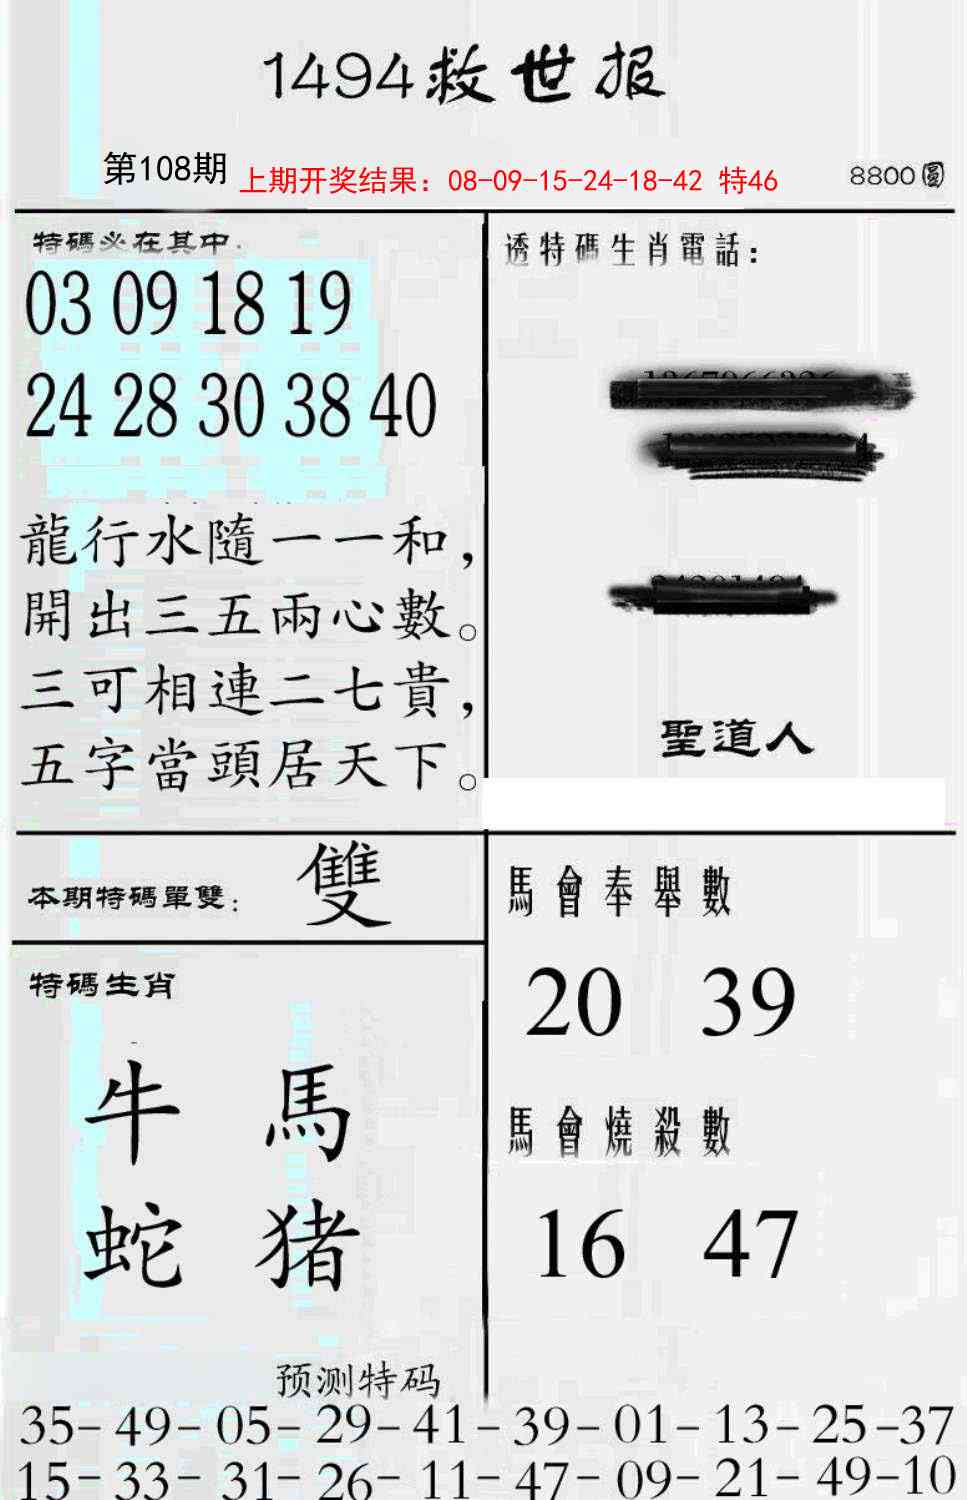 1494救世报
第108期 上期开奖结果：08-09-15-24-18-42 特46 8800圓
特碼必在其中：
03 09 18 19
24 28 30 38 40
龍行水隨一一和，
開出三五兩心數。
三可相連二七貴，
五字當頭居天下。
透特碼生肖電話：
聖道人
本期特碼單雙： 雙
特碼生肖
牛 馬
蛇 猪
馬會奉舉數
20 39
馬會燒殺數
16 47
预测特码
35-49-05-29-41-39-01-13-25-37
15-33-31-26-11-47-09-21-49-10